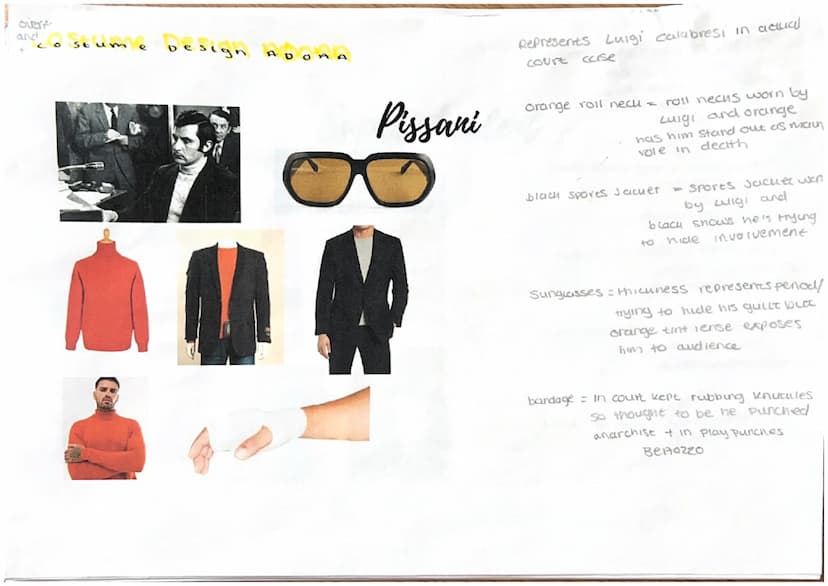 overt
and
+
COSTUME DESIGN ADOMA
costume Design ADOMA
Pissani
Represents Luigi Calabresi in actual
court case
orange roll neck = roll necks worn by
Luigi and orange
has him stand out as main
role in death
black sports jacket = sports jacket worn
by Luigi and
black shows he's trying
to hide involvement
sunglasses = thickness represents period/
trying to hide his guilt but
orange tint lense exposes
him to audience
bandage = In court kept rubbing knuckles
so thought to be he punched
anarchist + in play punches
BERTOZZO